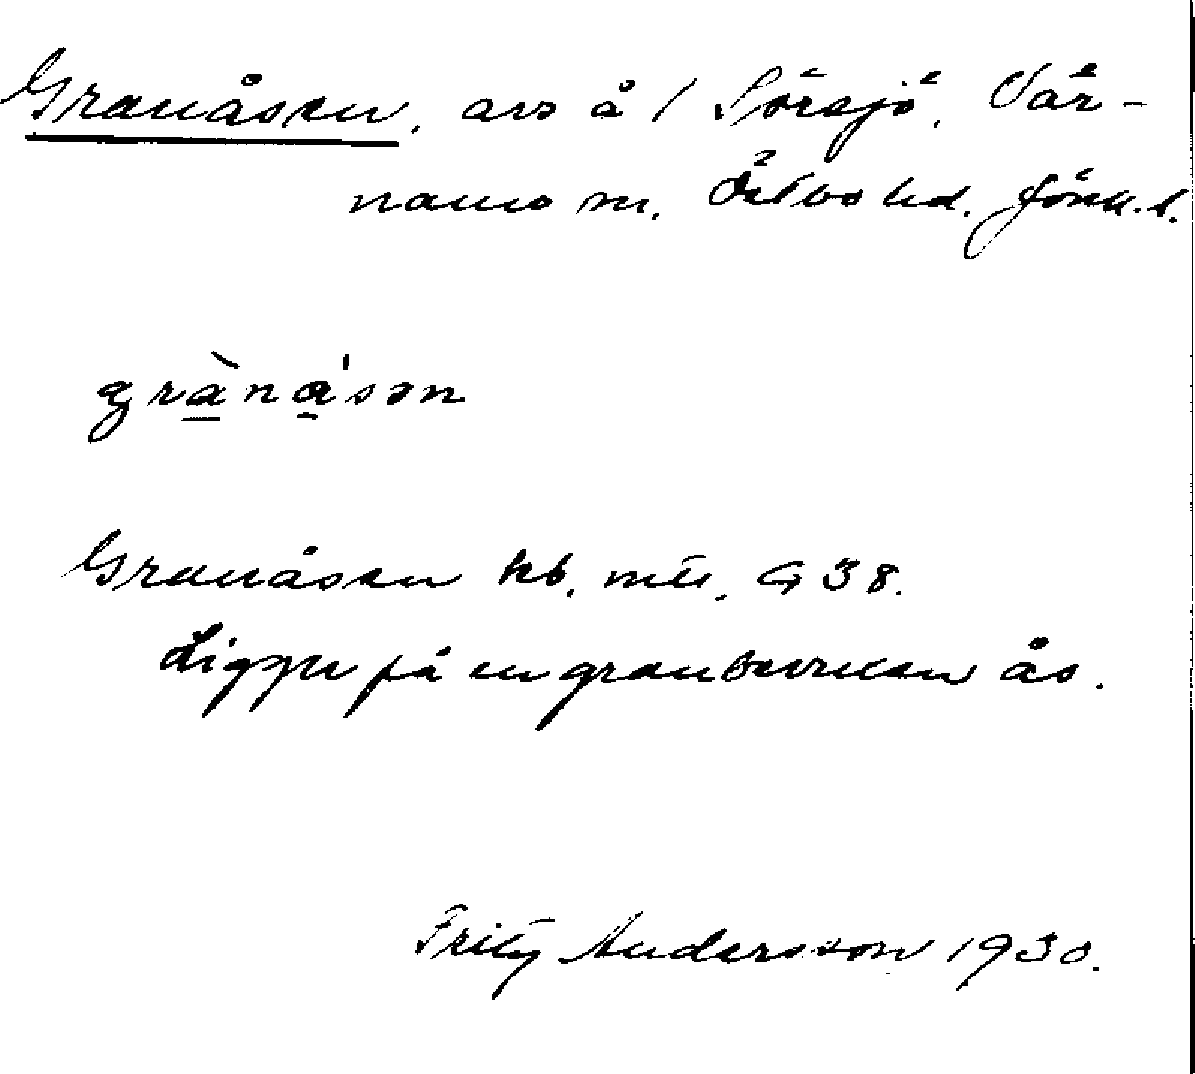 Granåsen, avs å 1 Sörsjö, Vär-
namo sn. Östbo hd. Jönk. l.
grànå'sən
Granåsen hb. G 38.
Ligger på en granbevuxen ås.
Fritz Andersson 1930.